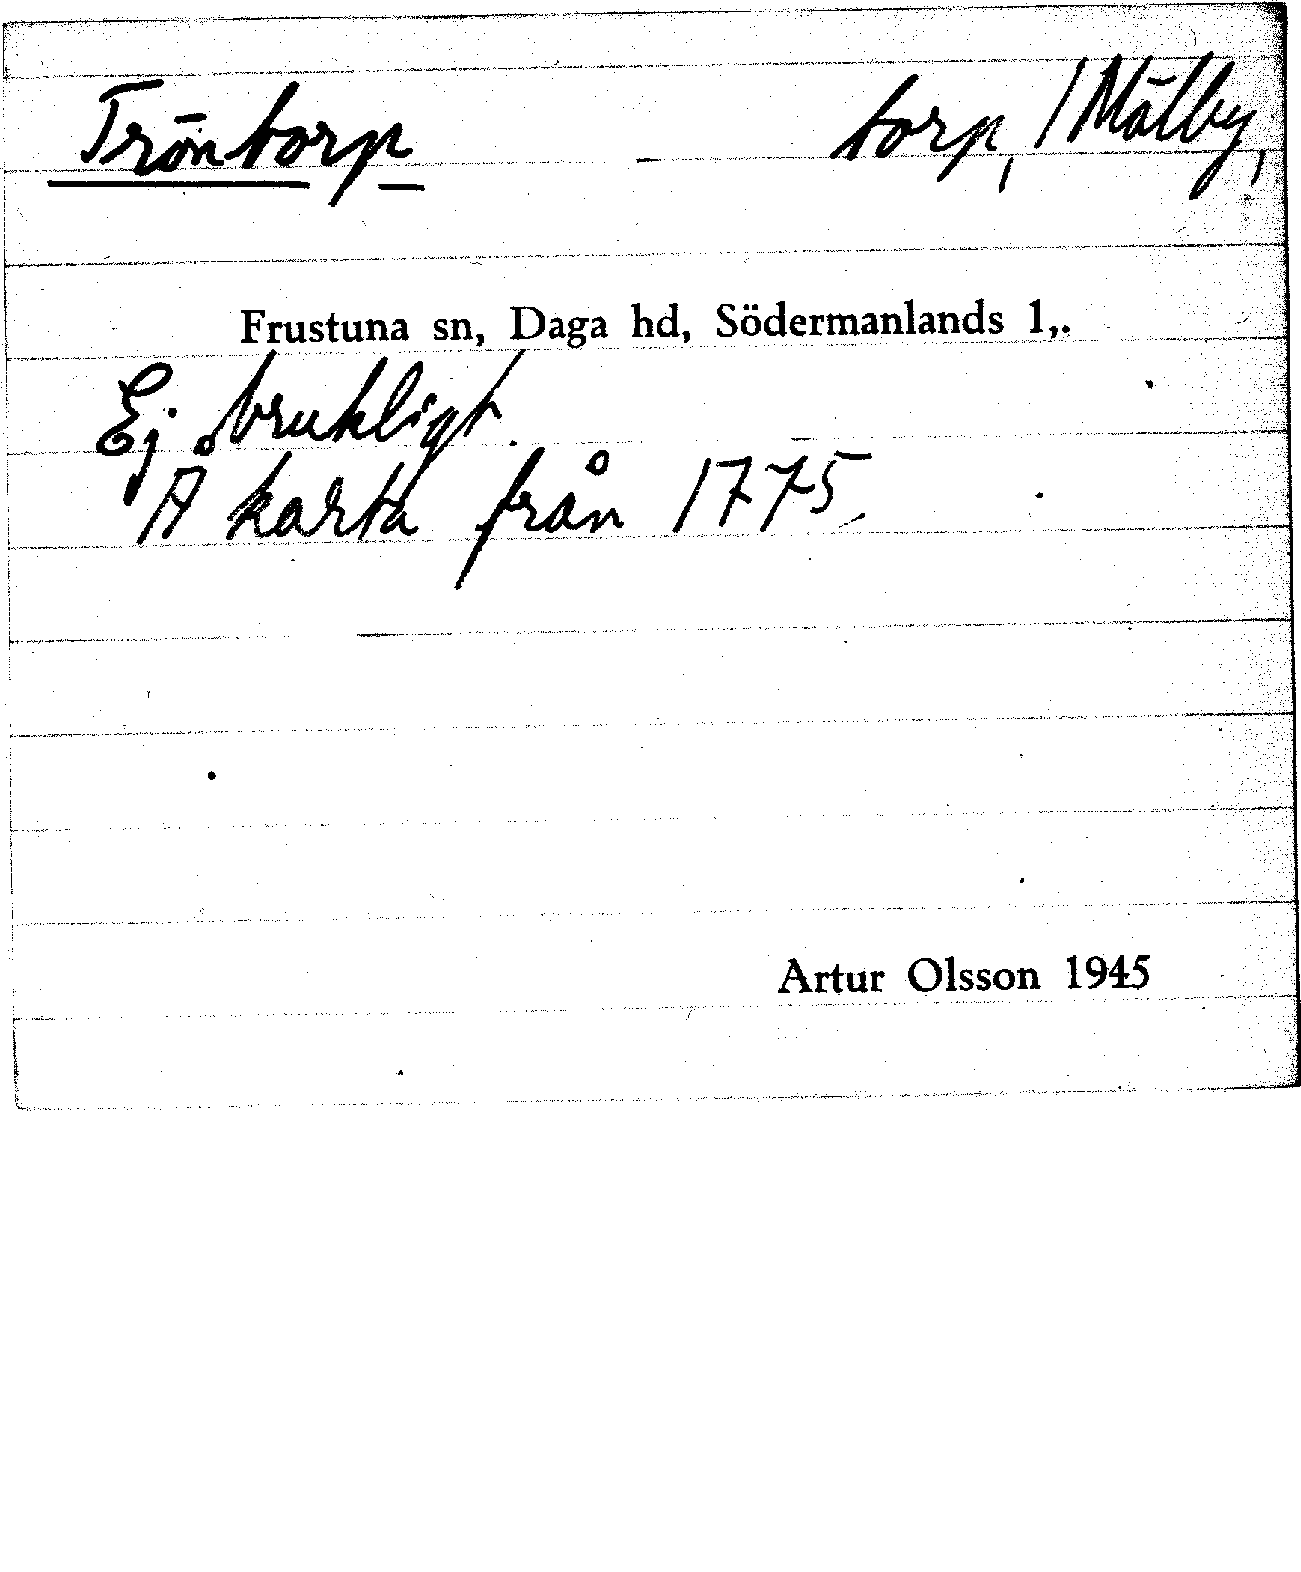 Tröntorp torp, / Mälby,
Frustuna sn, Daga hd, Södermanlands l,.
Ej brukligt.
Å karta från 1775.
Artur Olsson 1945